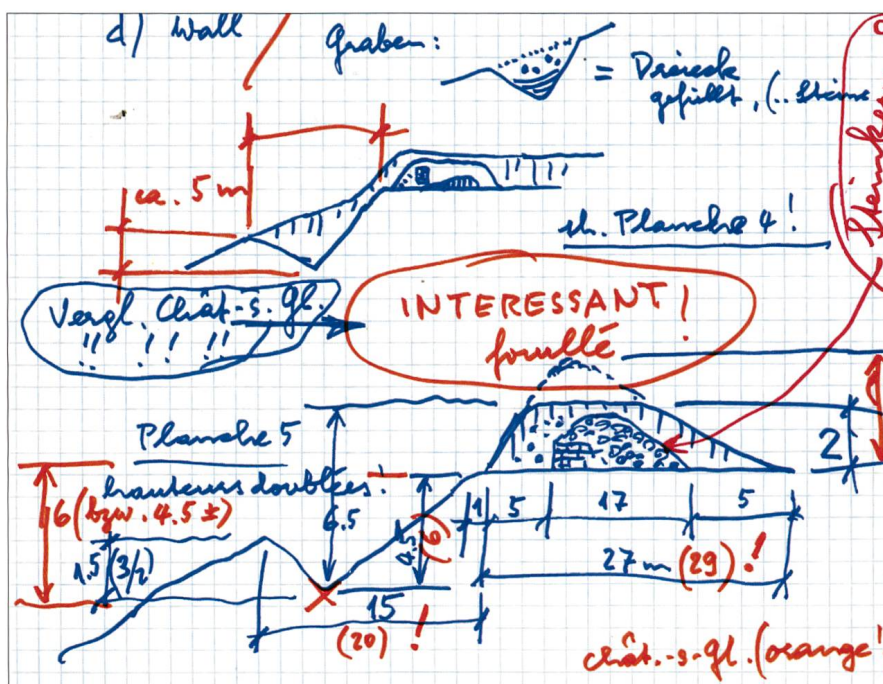 d) Wall
Graben:
= Dreieck
gefüllt, (.. Steine
ca. 5 m
sh. Planche 4!
Steinker
Vergl. Chât-s-gl.
!! !! !!
INTERESSANT!
fouillé
Planche 5
hauteurs doublées!
6 (bzw. 4.5 ±)
6.5
4.5
(6)
1.5 (3/2)
2
1 5 17 5
27 m (29)!
15
(20) !
chât.-s-gl. (orange